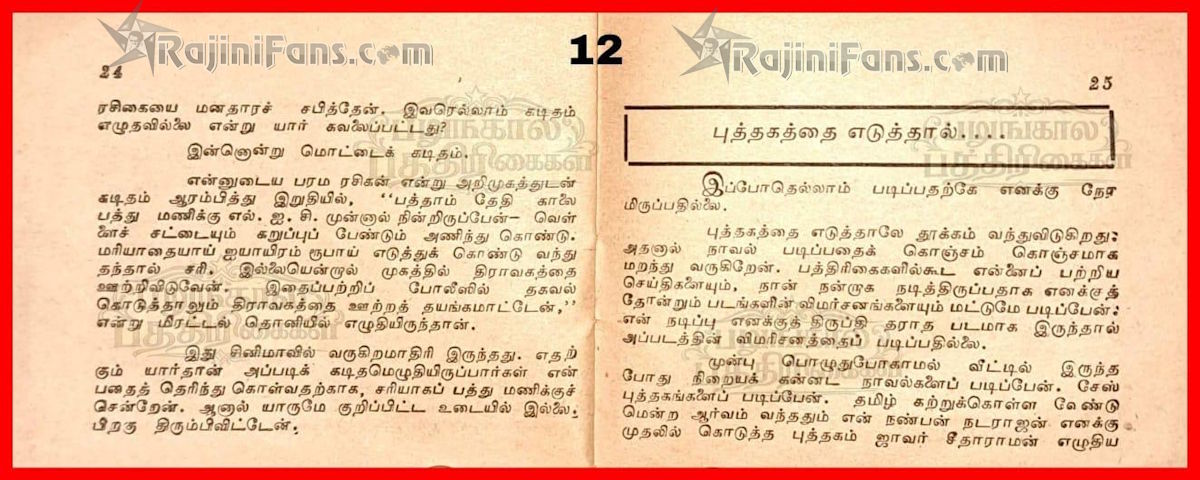 RajiniFans.com
12
RajiniFans.com
24
ரசிகையை மனதாரச் சபித்தேன். இவரெல்லாம் கடிதம்
எழுதவில்லை என்று யார் கவலைப்பட்டது?
இன்னொன்று மொட்டைக் கடிதம்.
என்னுடைய பரம ரசிகன் என்று அறிமுகத்துடன்
கடிதம் ஆரம்பித்து இறுதியில், “பத்தாம் தேதி காலை
பத்து மணிக்கு எல். ஐ. சி. முன்னால் நின்றிருப்பேன்— வெள்
ளைச் சட்டையும் கறுப்புப் பேண்டும் அணிந்து கொண்டு.
மரியாதையாய் ஐயாயிரம் ரூபாய் எடுத்துக் கொண்டு வந்து
தந்தால் சரி. இல்லையென்றால் முகத்தில் திராவகத்தை
ஊற்றிவிடுவேன். இதைப்பற்றிப் போலீஸில் தகவல்
கொடுத்தாலும் திராவகத்தை ஊற்றத் தயங்கமாட்டேன்,”
என்று மிரட்டல் தொனியில் எழுதியிருந்தான்.
இது சினிமாவில் வருகிறமாதிரி இருந்தது. எதற்
கும் யார்தான் அப்படிக் கடிதமெழுதியிருப்பார்கள் என்
பதைத் தெரிந்து கொள்வதற்காக, சரியாகப் பத்து மணிக்குச்
சென்றேன். ஆனால் யாருமே குறிப்பிட்ட உடையில் இல்லை.
பிறகு திரும்பிவிட்டேன்.
பழங்கால
பத்திரிகைகள்
பழங்கால
பத்திரிகைகள்
25
புத்தகத்தை எடுத்தால்....
இப்போதெல்லாம் படிப்பதற்கே எனக்கு நேர
மிருப்பதில்லை.
புத்தகத்தை எடுத்தாலே தூக்கம் வந்துவிடுகிறது.
அதனால் நாவல் படிப்பதைக் கொஞ்சம் கொஞ்சமாக
மறந்து வருகிறேன். பத்திரிகைகளில்கூட என்னைப் பற்றிய
செய்திகளையும், நான் நன்றாக நடித்திருப்பதாக எனக்குத்
தோன்றும் படங்களின் விமர்சனங்களையும் மட்டுமே படிப்பேன்.
என் நடிப்பு எனக்குத் திருப்தி தராத படமாக இருந்தால்
அப்படத்தின் விமர்சனத்தைப் படிப்பதில்லை.
முன்பு பொழுதுபோகாமல் வீட்டில் இருந்த
போது நிறையக் கன்னட நாவல்களைப் படிப்பேன். சேஸ்
புத்தகங்களைப் படிப்பேன். தமிழ் கற்றுக்கொள்ள வேண்டு
மென்ற ஆர்வம் வந்ததும் என் நண்பன் நடராஜன் எனக்கு
முதலில் கொடுத்த புத்தகம் ஜாவர் சீதாராமன் எழுதிய
பழங்கால
பத்திரிகைகள்
பழங்கால
பத்திரிகைகள்